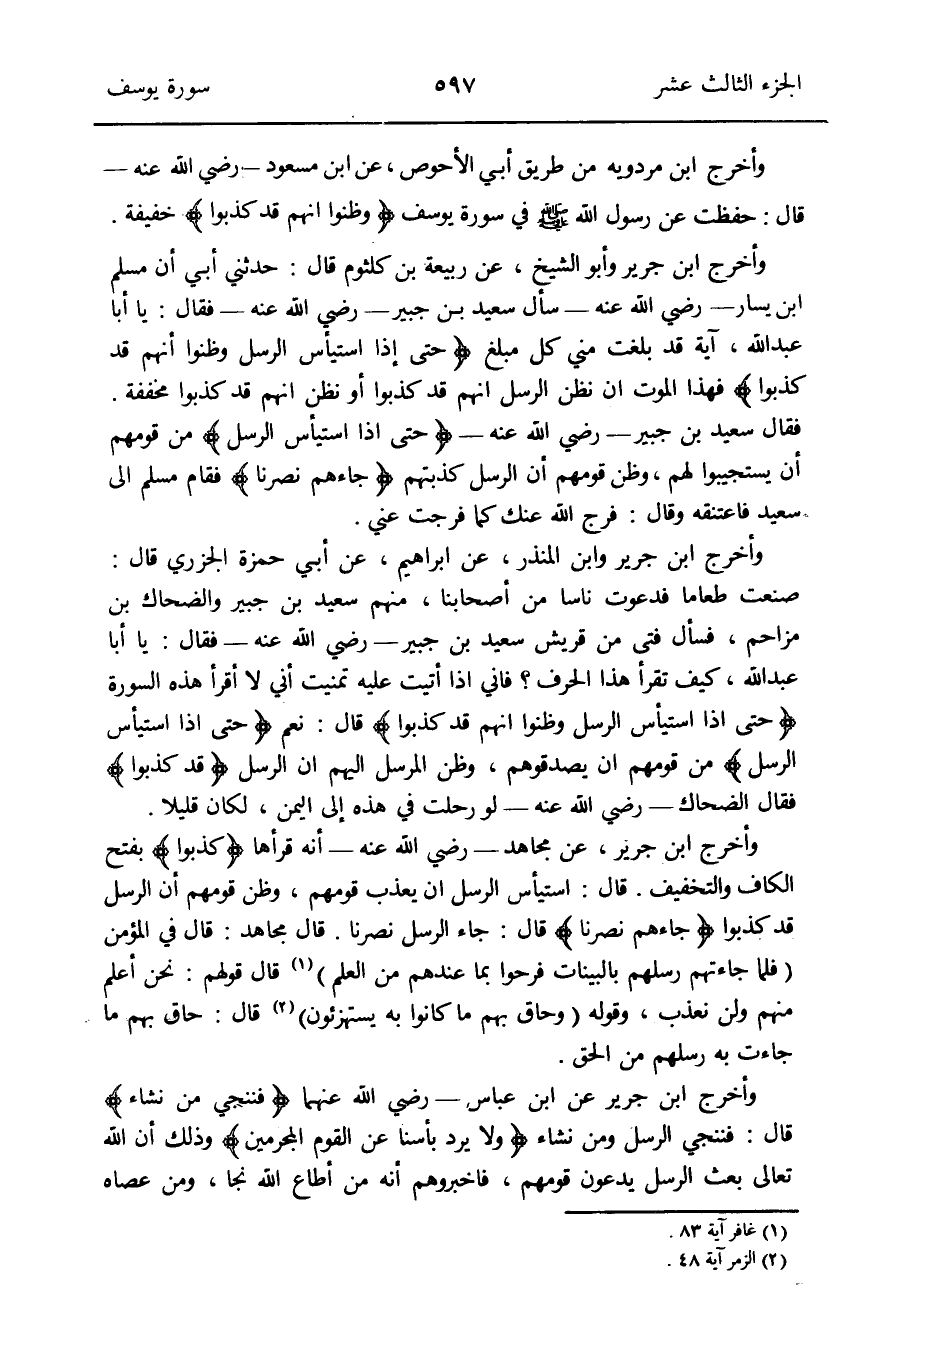 الجزء الثالث عشر ٥٩٧ سورة يوسف
وأخرج ابن مردويه من طريق أبي الأحوص ، عن ابن مسعود – رضي الله عنه –
قال : حفظت عن رسول الله ﷺ في سورة يوسف ﴿ وظنوا انهم قد كذبوا ﴾ خفيفة .
وأخرج ابن جرير وأبو الشيخ ، عن ربيعة بن كلثوم قال : حدثني أبي أن مسلم
ابن يسار – رضي الله عنه – سأل سعيد بن جبير – رضي الله عنه – فقال : يا أبا
عبدالله ، آية قد بلغت مني كل مبلغ ﴿ حتى إذا استيأس الرسل وظنوا أنهم قد
كذبوا ﴾ فهذا الموت ان نظن الرسل انهم قد كذبوا أو نظن انهم قد كذبوا مخففة .
فقال سعيد بن جبير – رضي الله عنه – ﴿ حتى اذا استيأس الرسل ﴾ من قومهم
أن يستجيبوا لهم ، وظن قومهم أن الرسل كذبتهم ﴿ جاءهم نصرنا ﴾ فقام مسلم الى
سعيد فاعتنقه وقال : فرج الله عنك كما فرجت عني .
وأخرج ابن جرير وابن المنذر ، عن ابراهيم ، عن أبي حمزة الجزري قال :
صنعت طعاما فدعوت ناسا من أصحابنا ، منهم سعيد بن جبير والضحاك بن
مزاحم ، فسأل فتى من قريش سعيد بن جبير – رضي الله عنه – فقال : يا أبا
عبدالله ، كيف تقرأ هذا الحرف ؟ فاني اذا أتيت عليه تمنيت أني لا أقرأ هذه السورة
﴿ حتى اذا استيأس الرسل وظنوا انهم قد كذبوا ﴾ قال : نعم ﴿ حتى اذا استيأس
الرسل ﴾ من قومهم ان يصدقوهم ، وظن المرسل اليهم ان الرسل ﴿ قد كذبوا ﴾
فقال الضحاك – رضي الله عنه – لو رحلت في هذه إلى اليمن ، لكان قليلا .
وأخرج ابن جرير ، عن مجاهد – رضي الله عنه – أنه قرأها ﴿ كذبوا ﴾ بفتح
الكاف والتخفيف . قال : استيأس الرسل ان يعذب قومهم ، وظن قومهم أن الرسل
قد كذبوا ﴿ جاءهم نصرنا ﴾ قال : جاء الرسل نصرنا . قال مجاهد : قال في المؤمن
( فلما جاءتهم رسلهم بالبينات فرحوا بما عندهم من العلم ) (١) قال قولهم : نحن أعلم
منهم ولن نعذب ، وقوله ( وحاق بهم ما كانوا به يستهزئون) (٢) قال : حاق بهم ما
جاءت به رسلهم من الحق .
وأخرج ابن جرير عن ابن عباس – رضي الله عنهما ﴿ فننجي من نشاء ﴾
قال : فننجي الرسل ومن نشاء ﴿ ولا يرد بأسنا عن القوم المجرمين ﴾ وذلك أن الله
تعالى بعث الرسل يدعون قومهم ، فاخبروهم أنه من أطاع الله نجا ، ومن عصاه
(١) غافر آية ٨٣ .
(٢) الزمر آية ٤٨ .